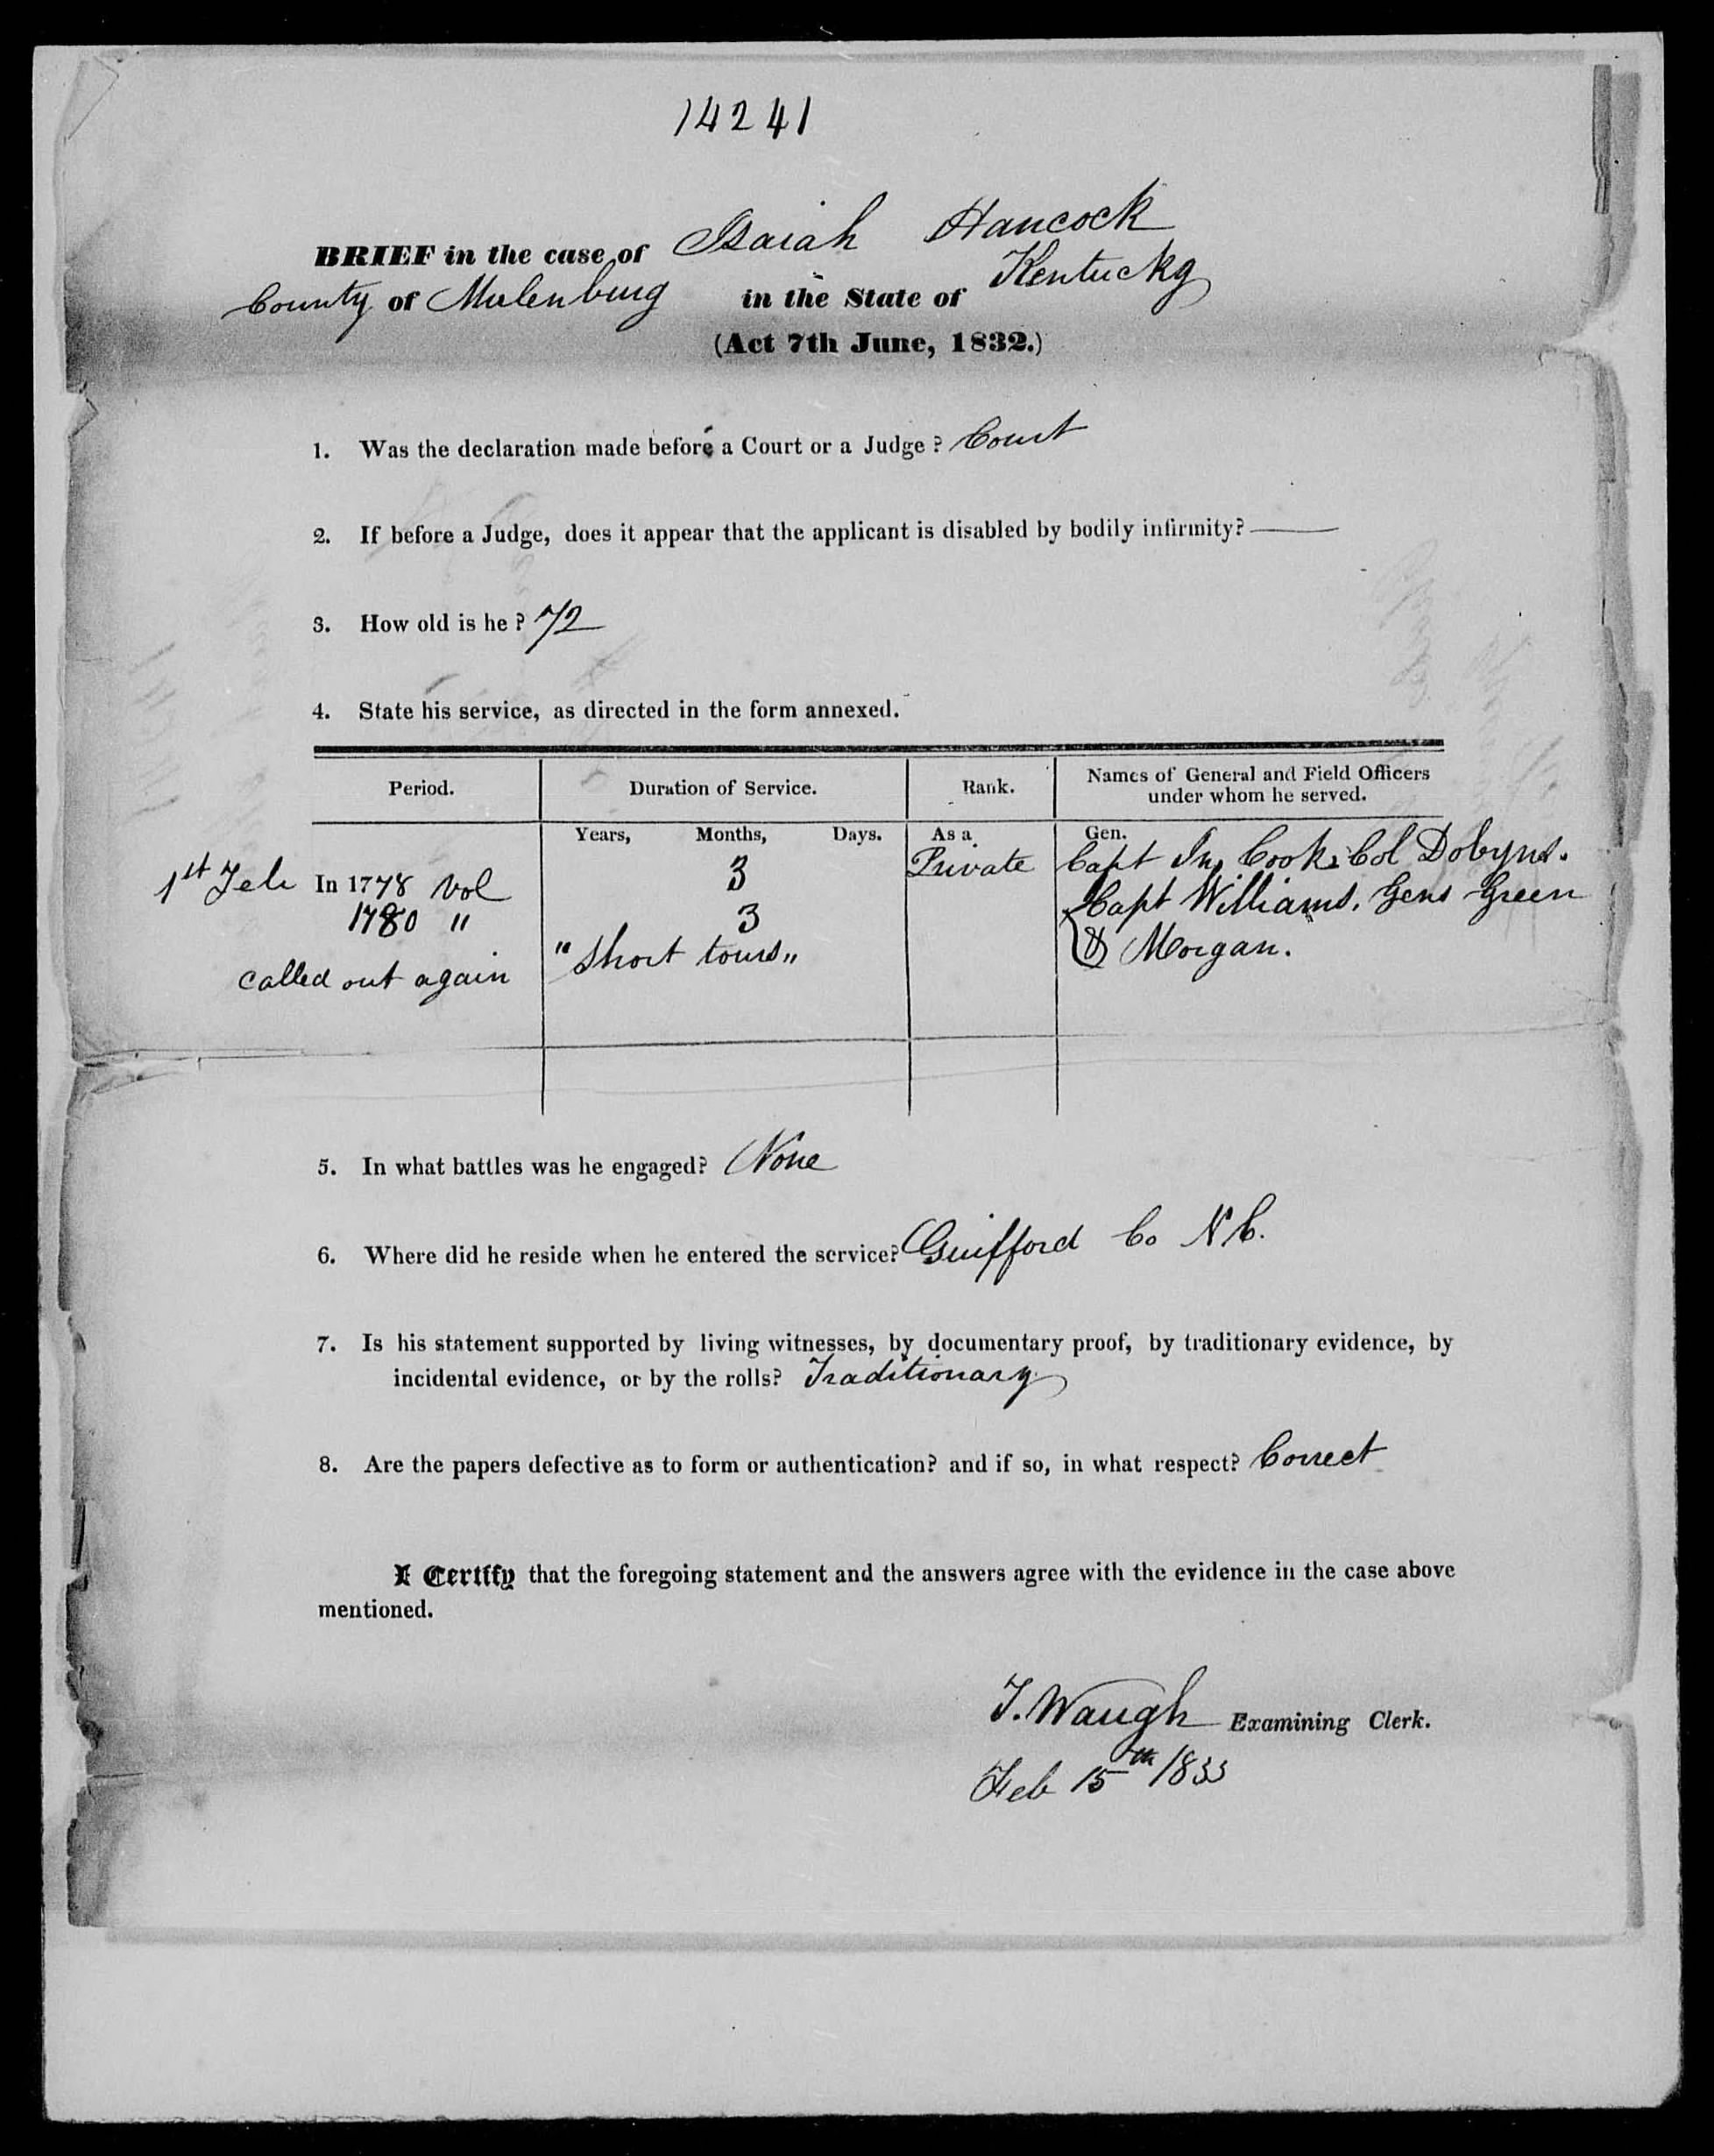 14241
BRIEF in the case of Isaiah Hancock
County of Mulenburg in the State of Kentucky
(Act 7th June, 1832.)
1. Was the declaration made before a Court or a Judge? Court
2. If before a Judge, does it appear that the applicant is disabled by bodily infirmity? ——
3. How old is he? 72
4. State his service, as directed in the form annexed.
Period. Duration of Service. Rank. Names of General and Field Officers
under whom he served.
Years, Months, Days. As a Gen.
1st Feb In 1778 Vol 3 Private Capt Jno Cook, Col Dobyns.
1780 " 3 Capt Williams, Gens Green
called out again "short tours" & Morgan.
5. In what battles was he engaged? None
6. Where did he reside when he entered the service? Guifford Co N C.
7. Is his statement supported by living witnesses, by documentary proof, by traditionary evidence, by
incidental evidence, or by the rolls? Traditionary
8. Are the papers defective as to form or authentication? and if so, in what respect? Correct
I Certify that the foregoing statement and the answers agree with the evidence in the case above
mentioned.
T. Waugh Examining Clerk.
Feb 15th 1833